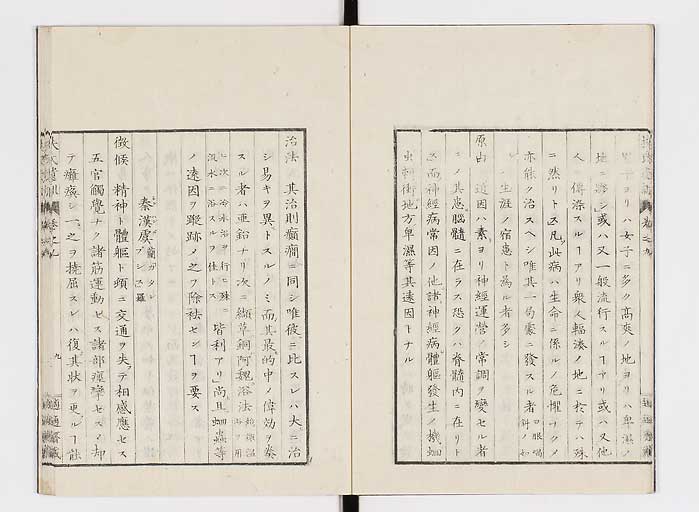 男子ヨリハ女子ニ多ク高爽ノ地ヨリハ卑濕ノ
地ニ夥シ或ハ又一般流行スルヿアリ或ハ又他
人ニ傳染スルヿアリ衆人輻湊ノ地ニ於テハ殊
ニ然リトス凡此病ハ生命ニ係ルノ危懼ナク
亦能ク治スヘシ唯其一局處ニ發スル者口眼喎斜ノ如
生涯ノ宿患ト為ル者多シ
原由 遠因ハ素ヨリ神經運營ノ常調ヲ變セル者
ニノ其患腦髓ニ在ラス恐クハ脊髓内ニ在リト
ス而神經病常因ノ他諸神經病體軀發生ノ機蛔
蟲刺衝地方卑濕等其遠因トナル
治法 其治則癲癇ニ同シ唯彼ニ比スレハ大ニ治
シ易キヲ異トスルノミ而其最的中ノ偉効ヲ奏
スル者ハ亜鉛ナリ次ニ纈草銅阿魏浴法
冷水浴ヲ行ヒ殊ニ
皆利アリ尚且蛔蟲等
ノ遠因ヲ蹤跡ノ之ヲ除祛センヿヲ要ス
徴候 精神ト體軀ト頓ニ交通ヲ失テ相感應セス
五官觸覺ナク諸筋運動セス諸部痙攣セスノ却
テ癱瘓シ之ヲ撓屈スレハ復其狀ヲ更ルヿ能
九
適適齋藏